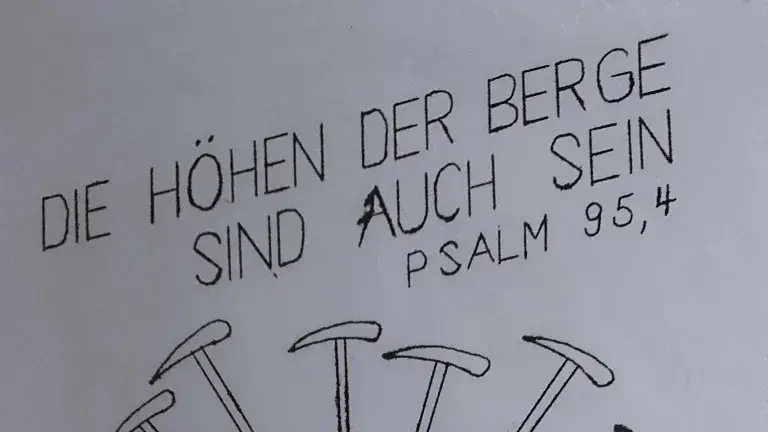 DIE HÖHEN DER BERGE
SIND AUCH SEIN
PSALM 95,4